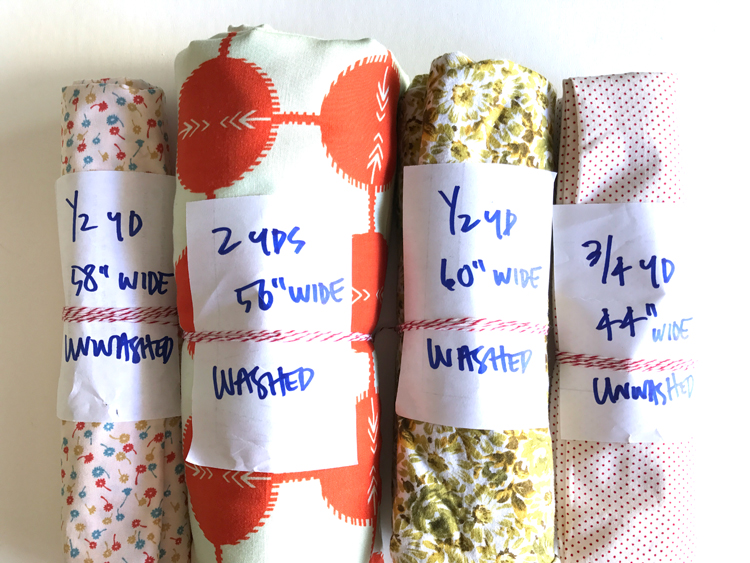 1/2 YD
58" WIDE
UNWASHED
2 YDS
56" WIDE
WASHED
1/2 YD
60" WIDE
WASHED
3/4 YD
44" WIDE
UNWASHED